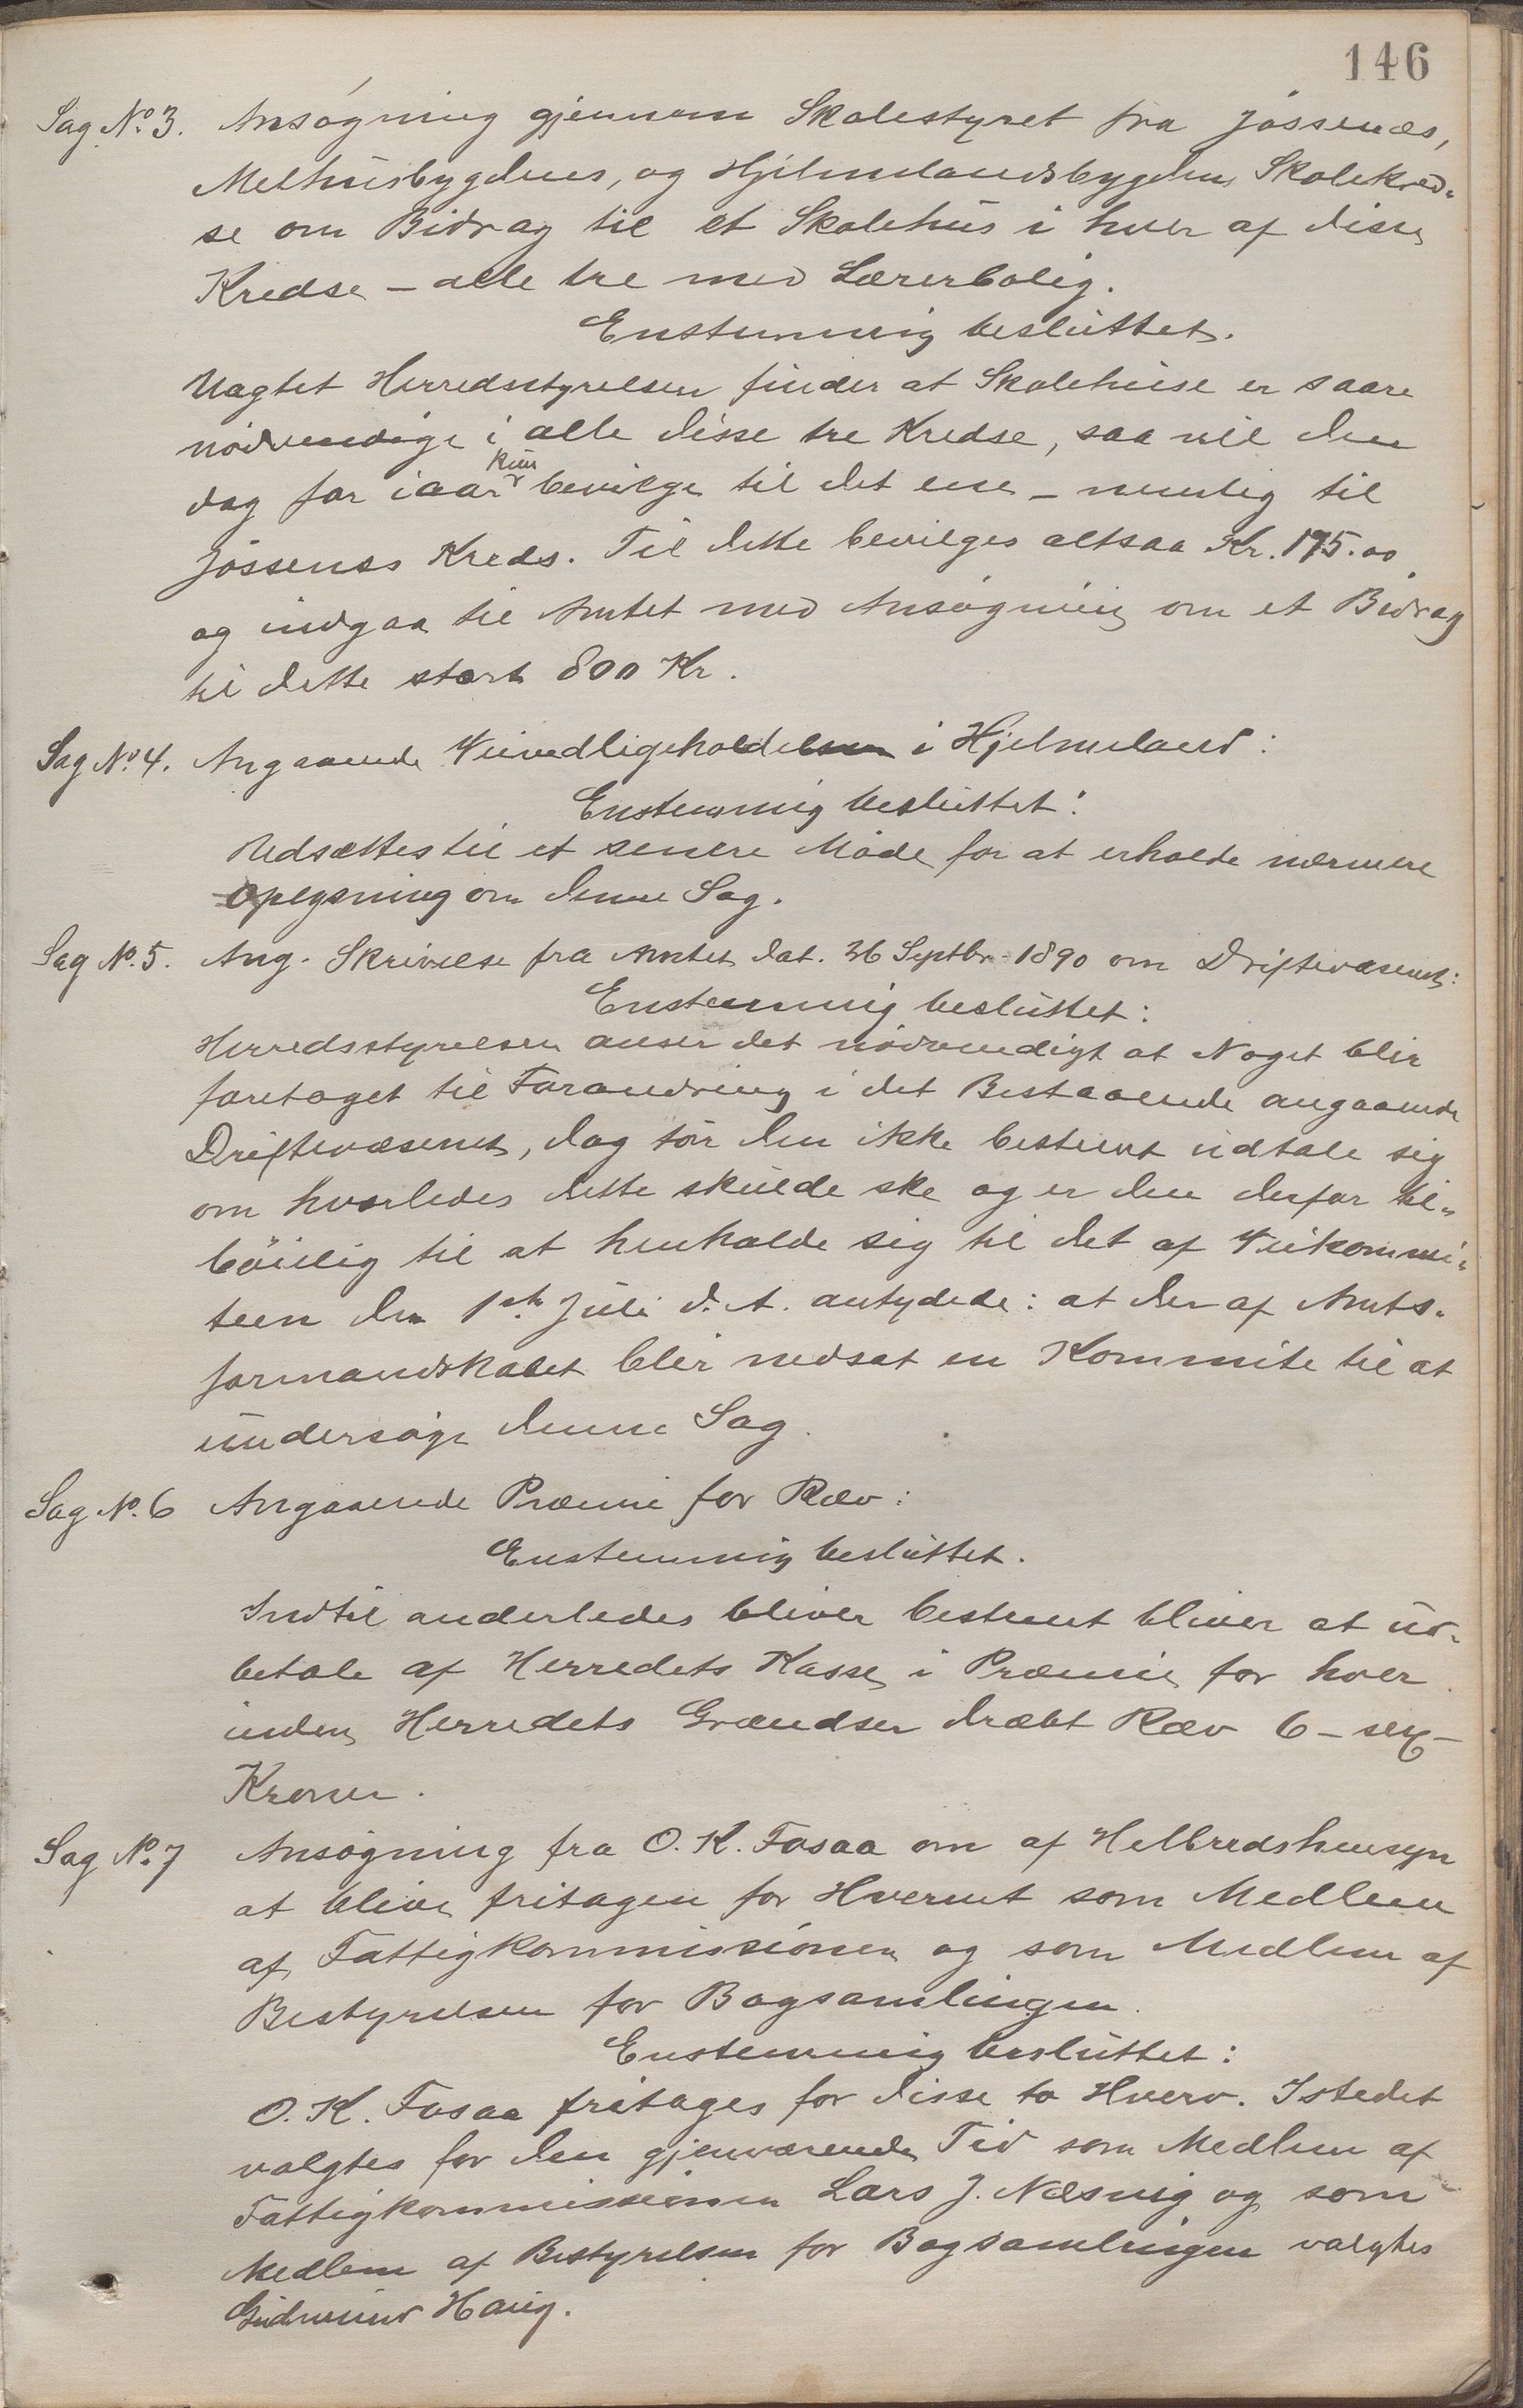 146
Sag No 3. Ansøgning gjennem Skolestyret fra Jøssenæs,
Melhusbygdens, og Hjelmelandsbygdens Skolekred-
se om Bidrag til et Skolehus i hver af disse
Kredse – alle tre med Lærerbolig.
Enstemmig besluttet.
Uagtet Herredsstyrelsen finder at Skolehuse er saare
nødvendige i alle disse tre Kredse, saa vil den
dog for iaar kun bevilge til det ene – nemlig til
Jøssenæs Kreds. Til dette bevilges altsaa Kr. 175.00
og indgaa til Amtet med Ansøgning om et Bidrag
til dette stort 800 Kr.
Sag No 4. Angaaende Veivedligeholdelsen i Hjelmeland:
Enstemmig besluttet:
Udsættes til et senere Møde for at erholde nærmere
Oplysning om denne Sag.
Sag No. 5. Ang. Skrivelse fra Amtet dat. 26 Septbr. 1890 om Driftevæsenet:
Enstemmig besluttet:
Herredsstyrelsen anser det nødvendigt at Noget blir
foretaget til Forandring i det Bestaaende angaaende
Driftevæsenet, dog tør den ikke bestemt udtale sig
om hvorledes dette skulde ske og er den derfor til-
bøielig til at henholde sig til det af Veikommi-
teen den 1ste Juli d. A. antydede: at der af Amts-
formandskabet blir nedsat en Kommite til at
undersøge denne Sag.
Sag No. 6 Angaaende Præmie for Ræv:
Enstemmig besluttet.
Indtil anderledes bliver bestemt bliver at ud-
betale af Herredets Kasse i Præmie for hver
inden Herredets Grændser dræbt Ræv 6 – sex –
Kroner.
Sag No. 7 Ansøgning fra O. K. Fosaa om af Helbredshensyn
at blive fritagen for Hvervet som Medlem
af Fattigkommissionen og som Medlem af
Bestyrelsen for Bogsamlingen.
Enstemmig besluttet:
O. K. Fosaa fritages for disse to Hverv. Istedet
valgtes for den gjenværende Tid som Medlem af
Fattigkommissionen Lars J. Næsvig og som
Medlem af Bestyrelsen for Bogsamlingen valgtes
Gudmund Haug.